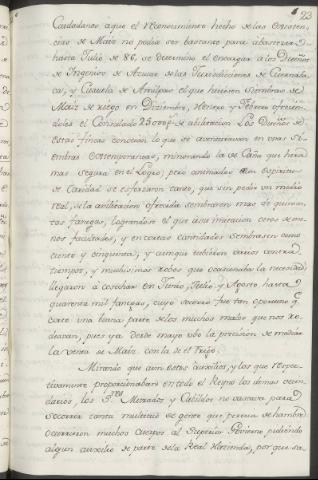 23
Ciudadanos a que el reconocimiento hecho de las existen-
cias de Maiz no podia ser bastante para abastecer
hasta Julio de 86, se determinó el encargar a los Dueños
de Ingenios de Azucar de las Jurisdicciones de Cuernava-
ca, y Cuautla de Amilpas el que hiciesen siembras de
Maiz de riego en Diciembre, Henero y Febrero ofrecien-
doles el Consulado de abilitacion. Los Dueños de
estas fincas conocian lo que se aventuravan en unas si-
embras extemporaneas, minorando la de Caña que hera
mas segura en el Logro; pero animados de un espiritu
de Caridad se esforzaron tanto, que sin pedir un medio
real, de la avilitacion ofrecida sembraron mas de quinien-
tas fanegas, lograndose el que a su imitacion otros de me-
nos facultades, y en cortas cantidades sembrasen como
ciento y cinquenta, y aunque tubieron varios contra
tiempos, y muchisimos robos que ocasionaba la necesidad
llegaron a cosechar en Junio, Julio y Agosto hasta
quarenta mil fanegas, cuyo socorro fue tan oportuno q.e
cortó una buena parte de los muchos males que nos ro-
deavan, pues ya desde mayo ubo la precision de mediar
la venta de Maiz con la de el Trigo.
Mirando que aun estos auxilios, y los que respec-
tivamente proporcionaban en todo el Reyno los demas acen-
darios, los S.res Mitrados y Cabildos no vastava para
socorrer tanta multitud de gente que perecia de hambre
ocurrieron muchos Cuerpos al Superior Govierno pidiendo
algun auxilio de parte de la Real Hacienda, por que su